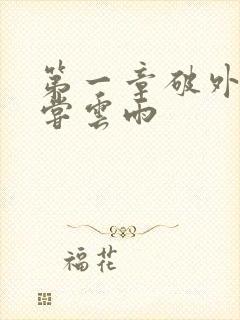 第一章破外
嘗雲雨
福花